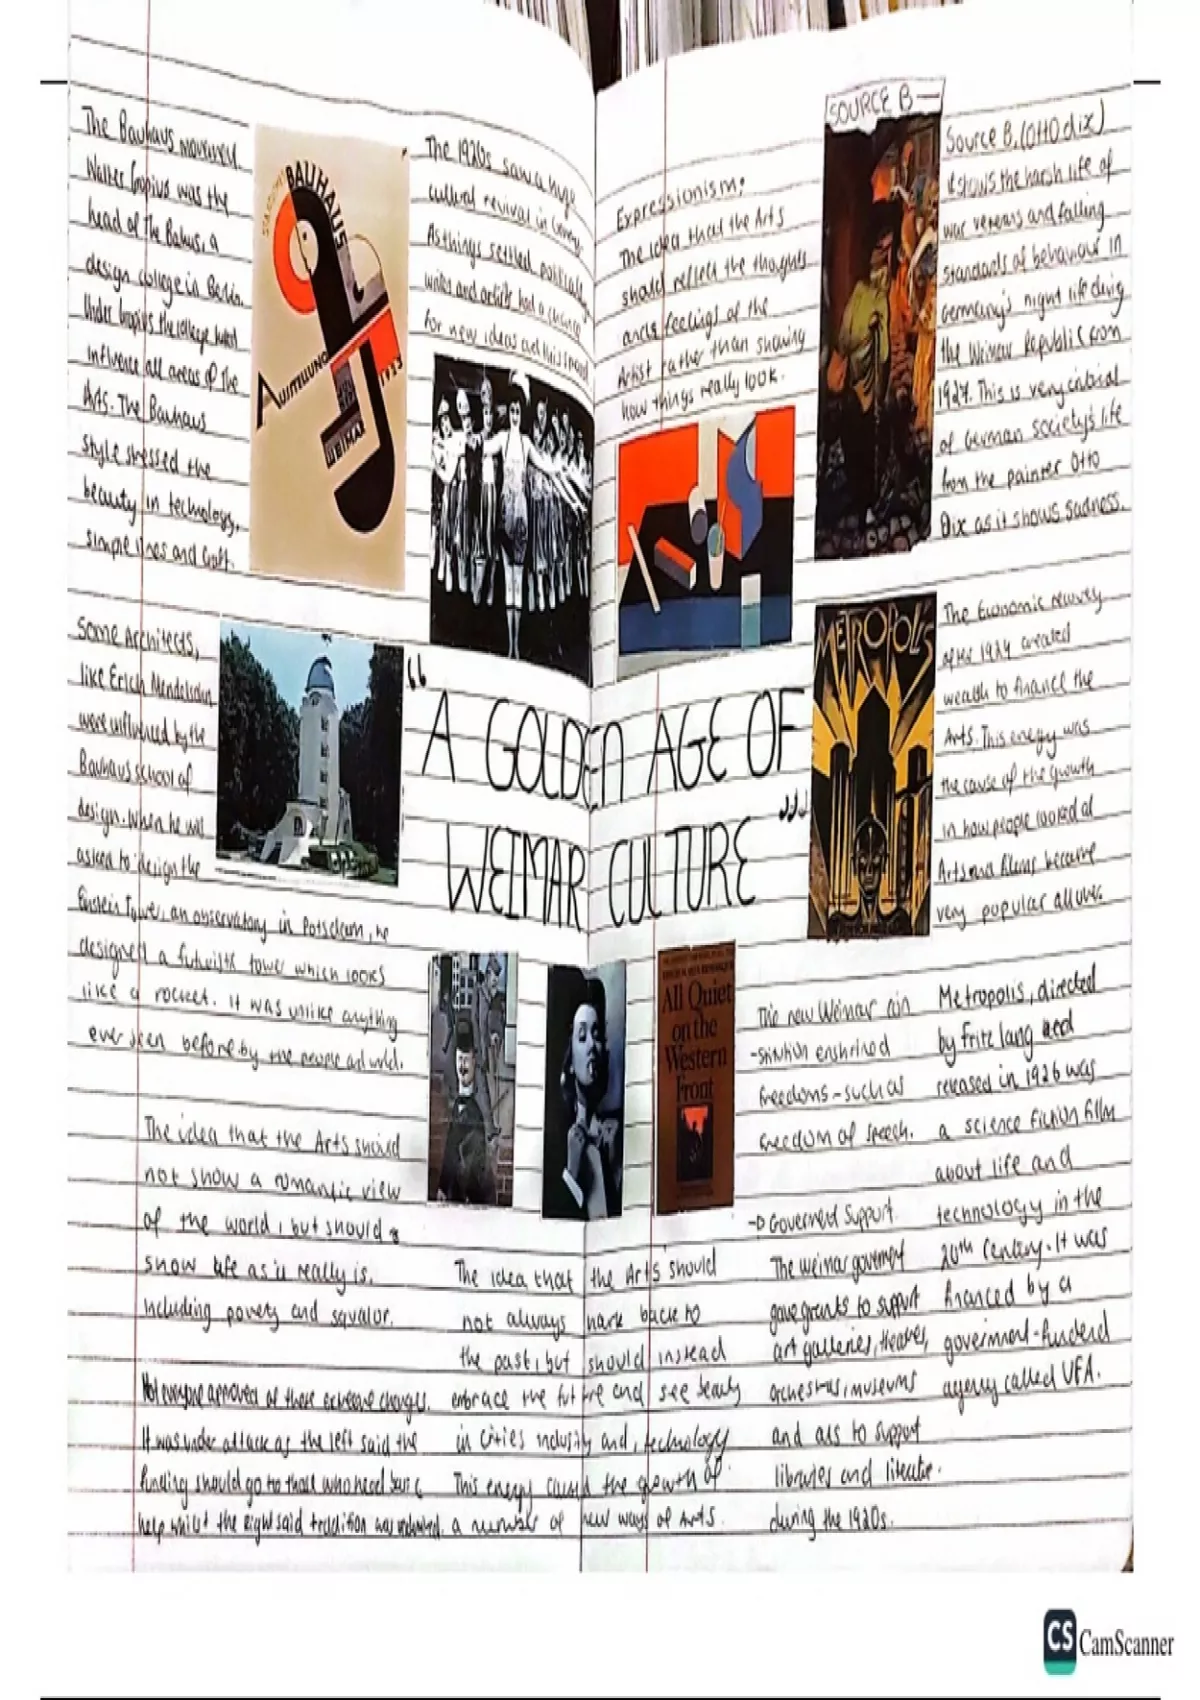 The Bauhaus movement
Walter Gropius was the
head of The Bahus, a
design college in Berlin.
Under Gropius the college
influence all areas of the
Arts. The Bauhaus
style stressed the
beauty in technology,
simple lines and craft.
BAUHAUS
AUSSTELLUNG
WEIMAR
1923
The 1920s saw a huge
cultural revival in Germany.
As things settled politically
writers and artists had a chance
for new ideas and this
Some Architects,
like Erich Mendelsohn,
were influenced by the
Bauhaus school of
design. When he was
asked to design the
Einstein Tower, an observatory in Potsdam, he
designed a futuristic tower which looks
like a rocket. It was unlike anything
ever seen before by the people
The idea that the Arts should
not show a romantic view
of the world, but should
show life as it really is,
including poverty and squalor.
Not everyone approved of these extreme changes.
It was under attack as the left said the
funding should go to those who need
help whilst the right said tradition was
“A GOLDEN AGE OF
WEIMAR CULTURE”
The idea that the Arts should
not always hark back to
the past, but should instead
embrace the future and see beauty
in cities industry and, technology
This energy caused the growth of
a number of new ways of Arts.
Expressionism:
The idea that the Arts
should reflect the thoughts
and feelings of the
Artist rather than showing
how things really look.
SOURCE B—
Source B. (Otto dix)
it shows the harsh life of
war veterans and falling
standards of behaviour in
Germany's night life during
the Weimar Republic from
1927. This is very
of German society's life
from the painter Otto
Dix as it shows sadness.
METROPOLIS
The Economic recovery
after 1924 created
wealth to finance the
Arts. This energy was
the cause of the growth
in how people looked at
Arts and films became
very popular all over.
All Quiet
on the
Western
Front
The new Weimar con
-stitution enshrined
freedoms - such as
freedom of speech.
→ Government Support
The Weimar government
gave grants to support
art galleries, theatres,
orchestras, museums
and acts to support
libraries and literature
during the 1920s.
Metropolis, directed
by Fritz lang and
released in 1926 was
a science fiction film
about life and
technology in the
20th century. It was
financed by a
government-funded
agency called UFA.
CS CamScanner